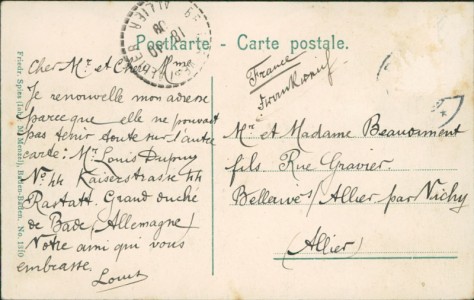 Postkarte - Carte postale.
ALLIER
France
Frankreich
Cher Mr et Chère Mme
Je renouvelle mon adresse
parceque elle ne pouvait
pas tenir toute sur l'autre
carte : Mr Louis Dupouy
No 44 Kaiserstrasse 44
Rastatt. Grand duché
de Bade (Allemagne)
Notre ami qui vous
embrasse.
Louis
Mr et Madame Beaucament
fils Rue Gravier.
Bellerives / Allier par Vichy
(Allier)
Friedr. Spies (Inh. M. Menzel), Baden-Baden. No. 1310